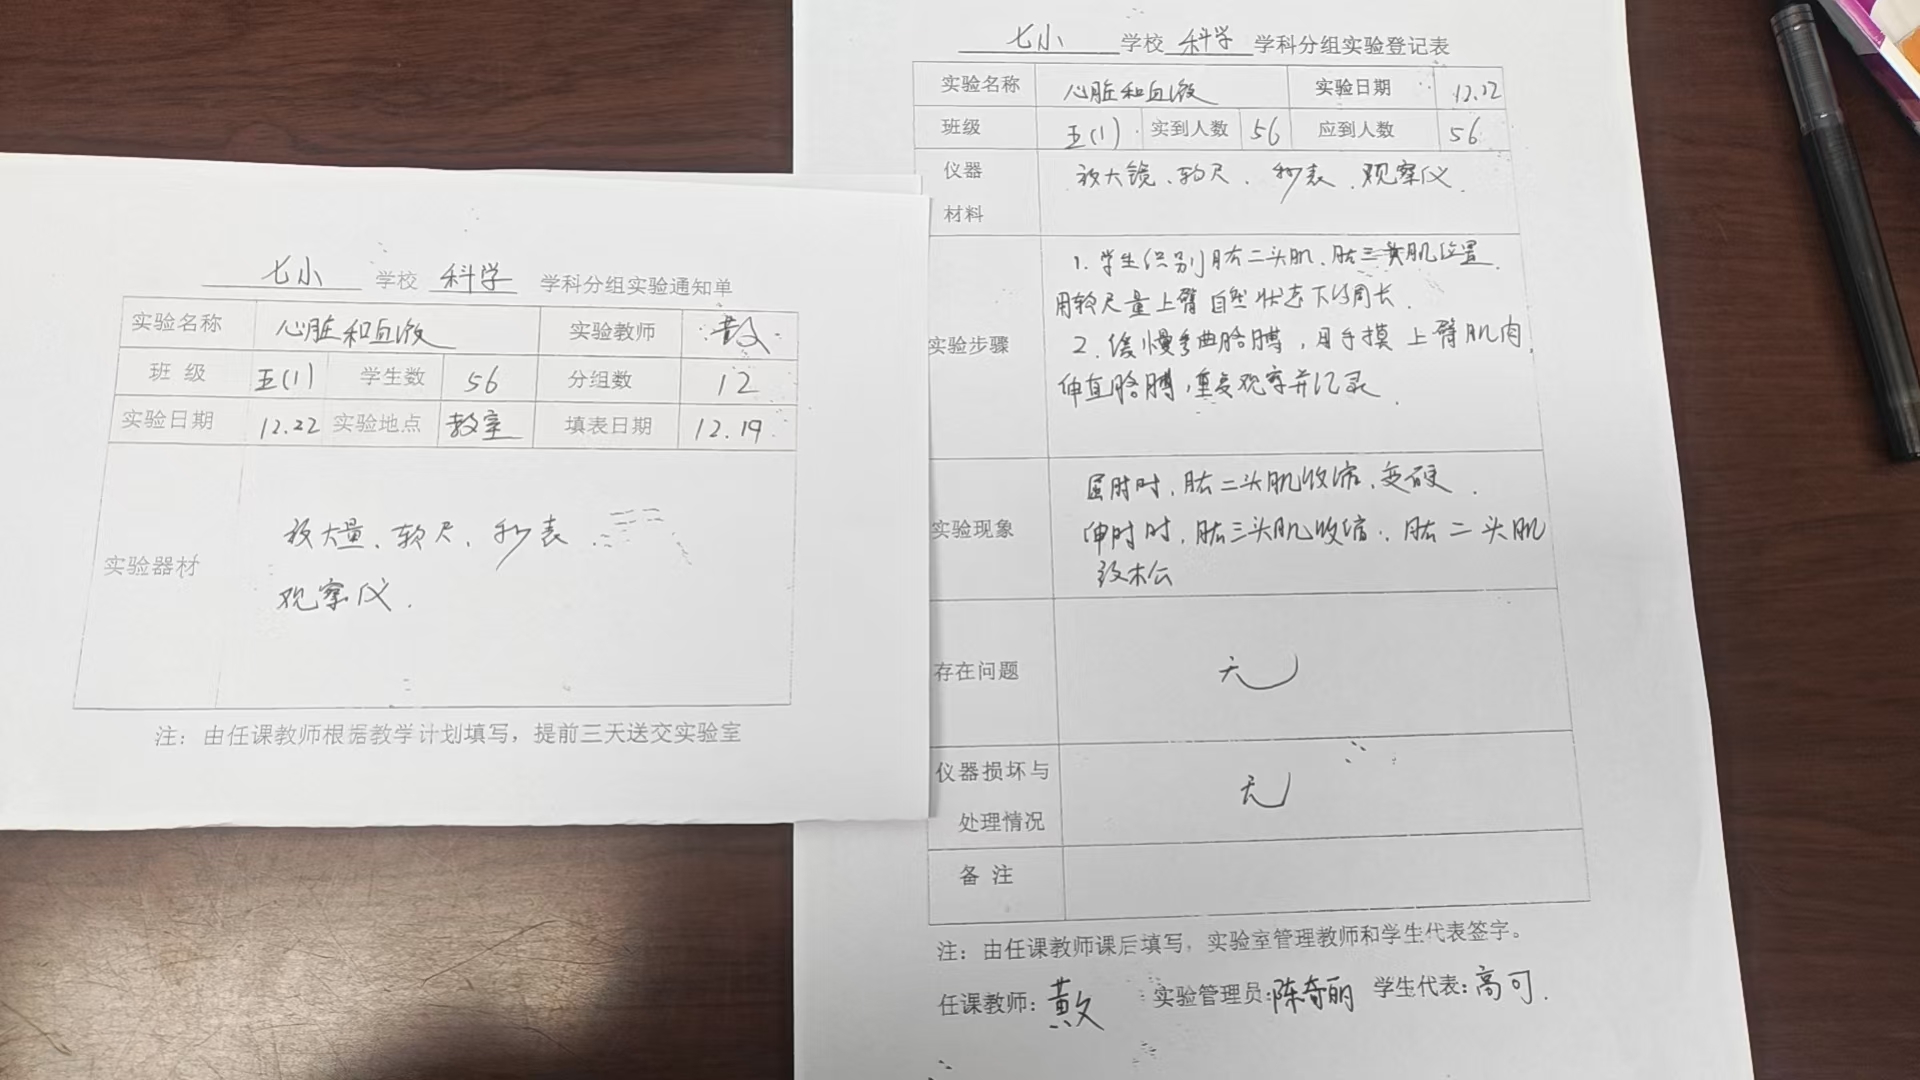 七小 学校 科学 学科分组实验通知单
实验名称 心脏和血液 实验教师
班 级 五(1) 学生数 56 分组数 12
实验日期 12.22 实验地点 教室 填表日期 12.19
实验器材 放大量、软尺、秒表、
观察仪.
注：由任课教师根据教学计划填写，提前三天送交实验室
七小 学校 科学 学科分组实验登记表
实验名称 心脏和血液 实验日期 12.22
班级 五(1) 实到人数 56 应到人数 56
仪器 放大镜、软尺、秒表、观察仪.
材料
1. 学生识别肱二头肌、肱三头肌位置.
用软尺量上臂自然状态下的周长.
实验步骤
2. 缓慢弯曲胳膊，用手摸上臂肌肉，
伸直胳膊，重复观察并记录.
屈肘时，肱二头肌收缩，变硬.
实验现象 伸肘时，肱三头肌收缩，肱二头肌
放松
存在问题 无
仪器损坏与 无
处理情况
备 注
注：由任课教师课后填写，实验室管理教师和学生代表签字。
任课教师： 实验管理员：陈奇丽 学生代表：高可.